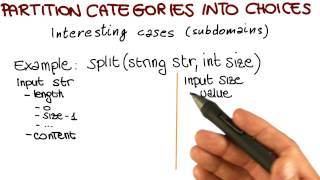 PARTITION CATEGORIES INTO CHOICES
Interesting cases (subdomains)
Example: split(string str, int size)
Input str
- length
- 0
- size-1
- ...
- content
Input size
value